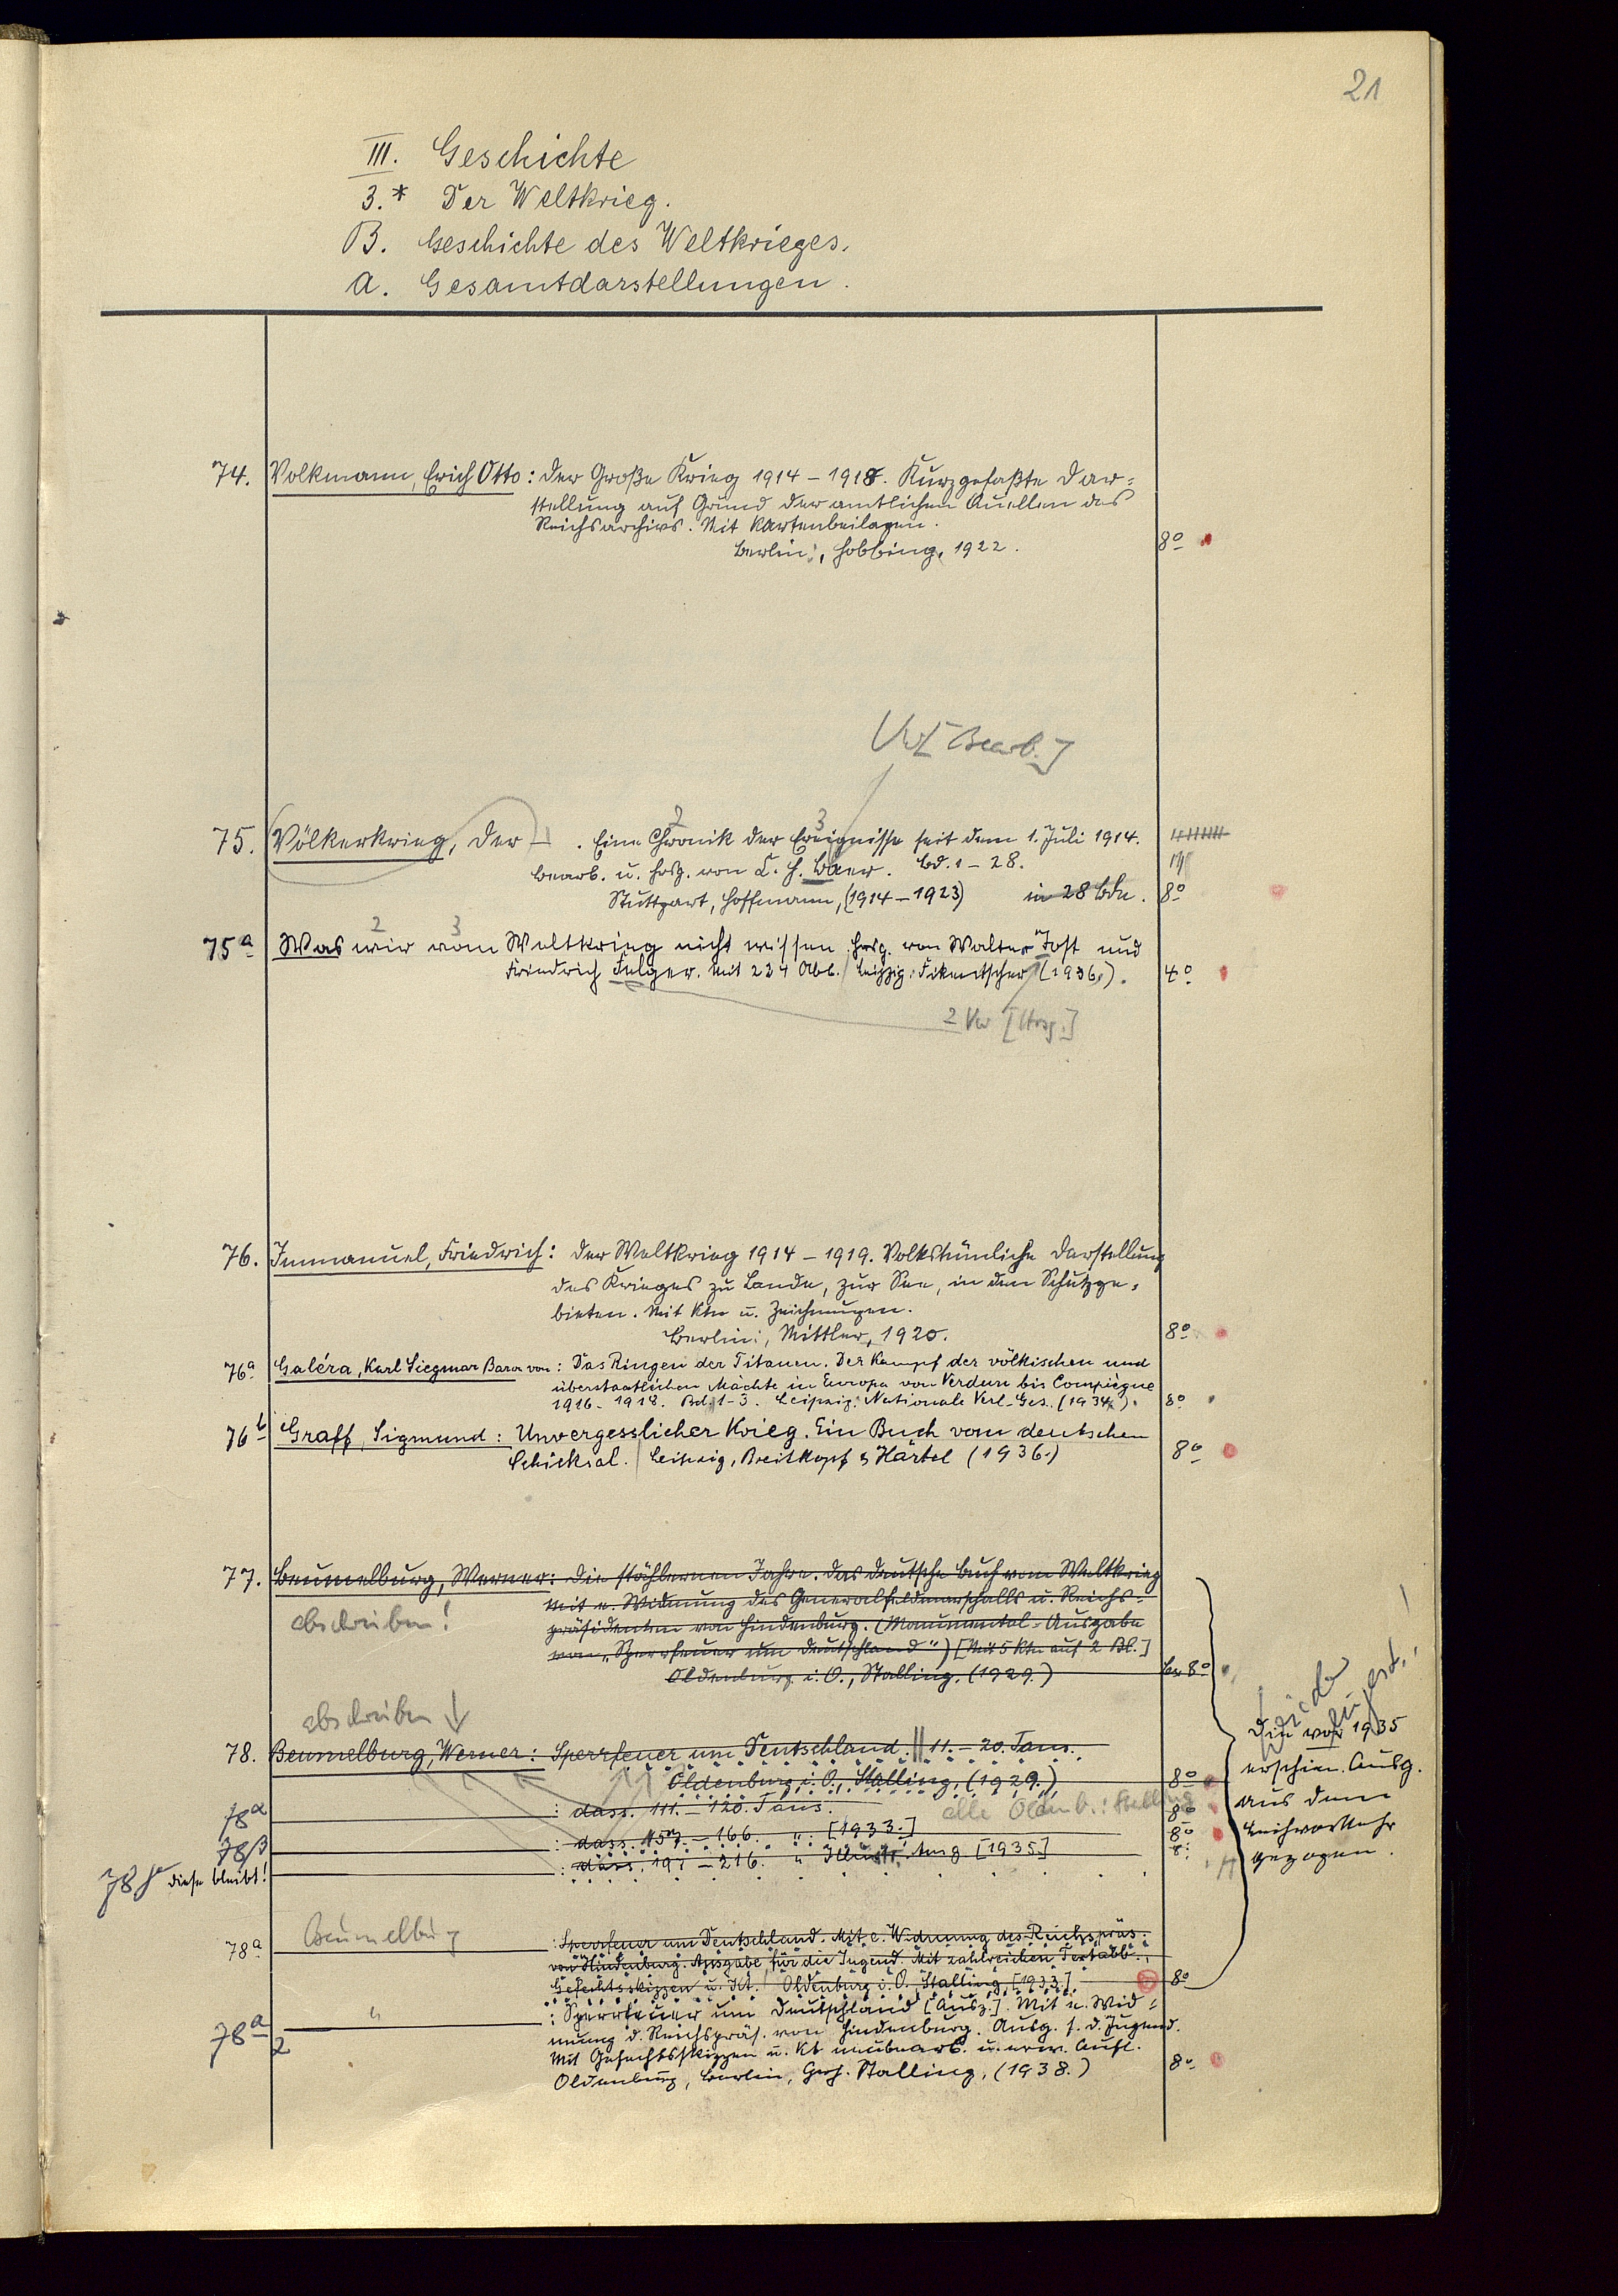 21
III. Geschichte
3.* Der Weltkrieg.
B. Geschichte des Weltkrieges.
a. Gesamtdarstellungen.
74. Volkmann, Erich Otto: Der Große Krieg 1914 – 1918. Kurzgefaßte Dar-
stellung auf Grund der amtlichen Quellen des
Reichsarchivs. Mit Kartenbeilagen.
Berlin:, Hobbing, 1922. 8°
[Bearb.]
75. Völkerkrieg, Der – . Eine Chronik der Ereignisse seit dem 1. Juli 1914.
bearb. u. hrsg. von C. H. Baer. Bd. 1 – 28.
Stuttgart, Hoffmann, (1914 – 1923) in 28 Bdn. 8°
75a Was wir vom Weltkrieg nicht wissen. Hrsg. von Walter Jost und
Friedrich Felger. Mit 234 Abb. Leipzig: Fikentscher (1936.). 4°
2 Vw [Hrsg.]
76. Immanuel, Friedrich: Der Weltkrieg 1914 – 1919. Volkstümliche Darstellung
des Krieges zu Lande, zur See, in den Schutzge-
bieten. Mit Ktn u. Zeichnungen.
Berlin:, Mittler, 1920. 8°
76a Galéra, Karl Siegmar Baron von: Das Ringen der Titanen. Der Kampf der völkischen und
überstaatlichen Mächte in Europa von Verdun bis Compiègne
1916 - 1918. Bd. 1-3. Leipzig: Nationale Verl.-Ges. (1934). 8°
76b Graff, Sigmund: Unvergesslicher Krieg. Ein Buch vom deutschen
Schicksal. Leipzig, Breitkopf & Härtel (1936.) 8°
77. Beumelburg, Werner: Die stählernen Jahre. Das deutsche Buch vom Weltkrieg
Mit e. Widmung des Generalfeldmarschalls u. Reichs-
abschreiben! präsidenten von Hindenburg. (Monumental-Ausgabe
von „Sperrfeuer um Deutschland") [Mit 5 Ktn auf 2 Bl.]
Oldenburg i. O., Stalling, (1929.) 8°
abschreiben ↓
78. Beumelburg, Werner: Sperrfeuer um Deutschland. || 11. – 20. Taus.
Oldenburg i. O., Stalling, (1929.) 8°
78α : dass. 111. – 120. Taus. alle Oldenb.: Stalling 8°
78β : dass. 157. – 166. " [1933.] 8°
78γ diese bleibt! : dass. 191 – 216. " Illustr. Ausg. [1935] 8°
wieder
Die vor 1935
erschien. Ausg.
aus dem
Leihverkehr
gezogen.
78a Beumelburg : Sperrfeuer um Deutschland. Mit e. Widmung des Reichspräs.
von Hindenburg. Ausgabe für die Jugend. Mit zahlreichen Textabb.,
Gefechtsskizzen u. Kt. Oldenburg i. O., Stalling, [1933.] 8°
78a 2 " : Sperrfeuer um Deutschland [Ausz.]. Mit e. Wid-
mung d. Reichspräs. von Hindenburg. Ausg. f. d. Jugend.
Mit Gefechtsskizzen u. Kt neubearb. u. erw. Aufl.
Oldenburg, Berlin, Gerh. Stalling, (1938.) 8°